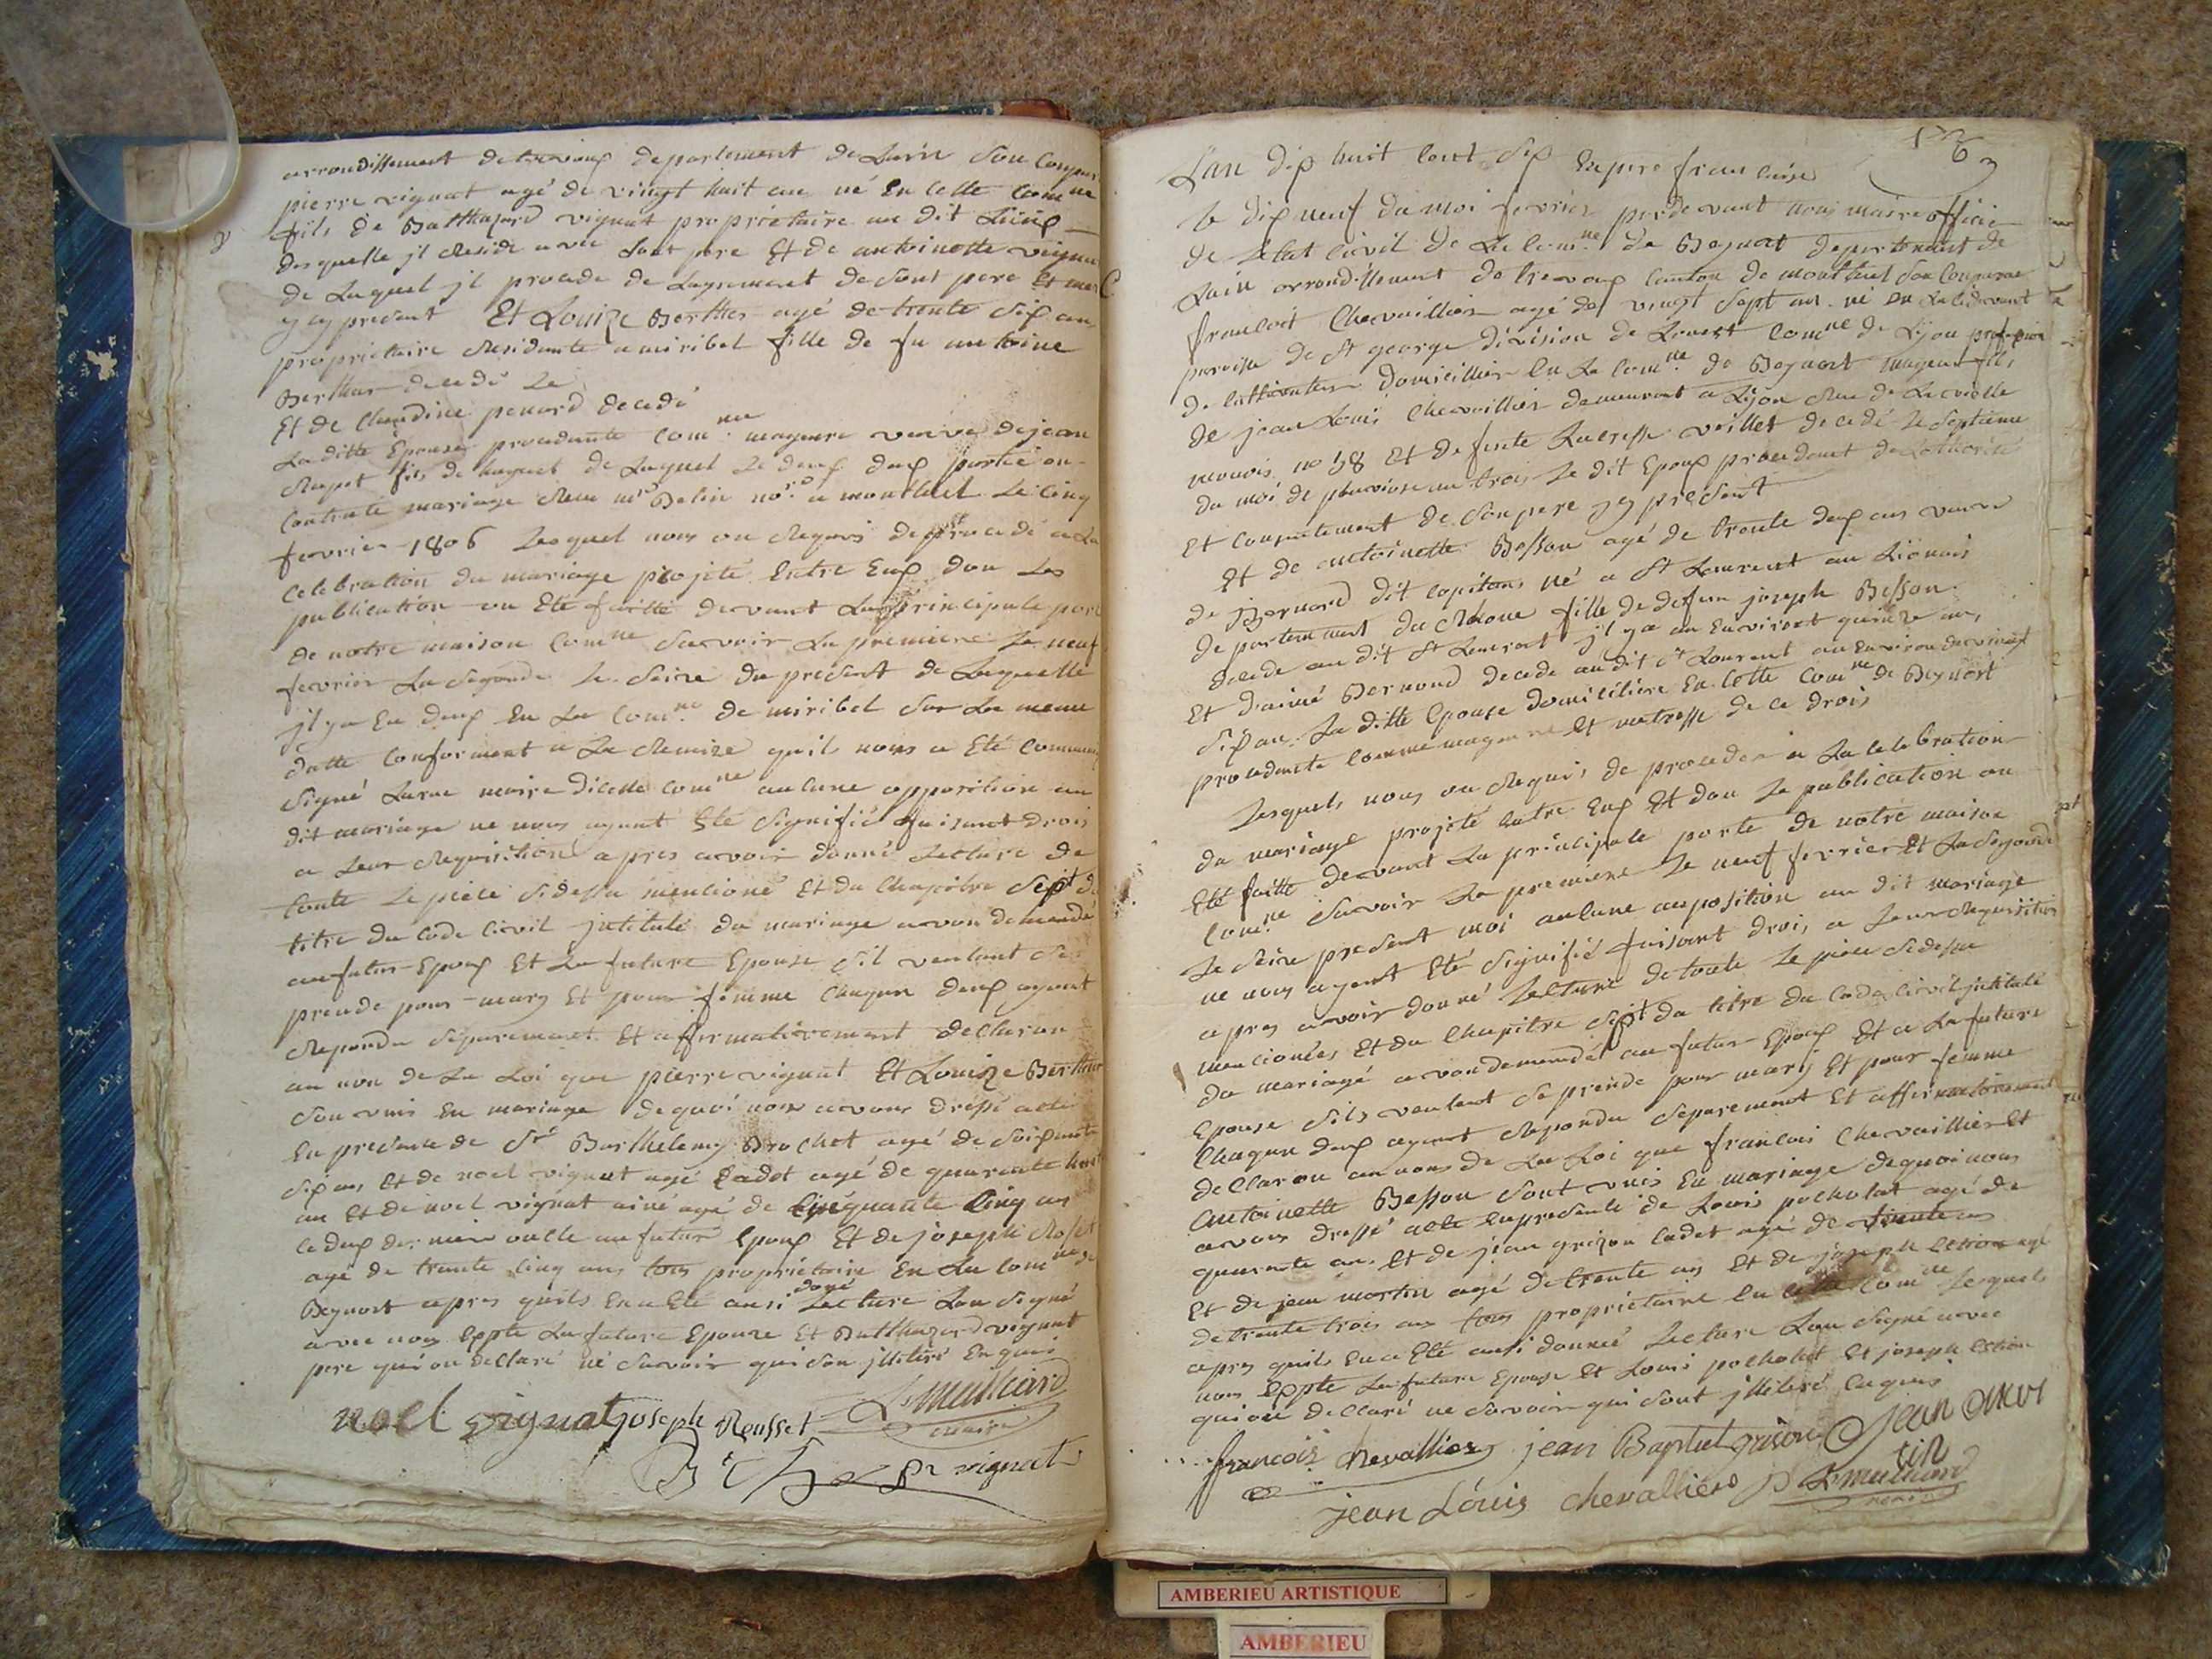 arrondissement de trevoux departement de Lain Son Conparu
pierre vignat agé de vingt huit an né En Cette Com ne
fils de Balthazard vignat propriétaire au dit Lieux
desquelle jl Reside avec Sont pere Et de antoinette vignat
de Laquel jl procede de Lagrement de Sont pere Et mere
y cy present Et Louize Berther agé de trente Six an
propriétaire Residante a miribel fille de fu antoine
Berther decedé Le
Et de Claudine penard decedé
La ditte Epouse procedante Com.ne mageure veuve de jean
Rupet fils de huguet de Laquel Le deux doux portié au
Contraté mariage Reçu mre Belin nore a montluel Le Cinq
fevrier 1806 Lesquel nous on Requis de procedé a La
Celebration du mariage projeté Entre Eux don Les
publication on Eté faitte devant La principale porte
de notre maison Comne Savoir La premiere Le neuf
fevrier La Segonde Le Seize du present de Laquelle
jl y a Eu deux En La Com.ne de miribel Sur La meme
datte Conforment a La Remize quil nous a Eté Commun
Signé Larue maire dicelle Comne aucune opposition au
dit mariage ne nous ayant Eté Signifié faisant drois
a Leur Requisition apres avoir donné Lecture de
toute Le piéce Sidessu mentioné Et du Chapitre Sept du
titre du Code Civil jntitulé du mariage avon demandé
au futur Epoux Et La future Epouse Sil veulent Se
prende pour mary Et pour femme Chaqun deux ayant
Repondu Séparement Et affirmativement declaron
au non de La Loi que pierre vignat Et Louize Berther
Son unis En mariage dequoi nous avons dressé acte
En presence de Sr Barthelemy Brochet agé de Soixante
Six an, Et de noel vignat agé Cadet agé de quarante huit
an Et de noel vignat ainé agé de Cinquante Cinq an
Ce deux dernier oncle au futur Epoux Et de joseph Roset
agé de trante Cinq ans tous propriétaire En La Comne de
Beynost apres quils En a Eté ausi doné Lecture Lon Signé
avec nous Eppte La future Epouze Et Balthazard vignat
pere qui on declaré né Savoir qui Son jlliteré Enquis
noel vignat joseph Rousset L Mailliard
maire
Br vignat
L'an dix huit Cent Six Enpire francaise
Le dix neuf du moi fevrier pardevant nous maire officié
de Letat Civil de La Com.ne de Beynost departement de
Lain arrondissement de trevoux Canton de montluel Son Conparue
francoit Chevaillier agé de vingt Sept an né En La Cidevant
paroisse de St george division de Louest Comne de Lyon profession
de Cultivateur domicillier En La Com.ne de Beynost mageur fils
de jean Louis Chevaillier demeurant a Lyon Rue de La vielle
monois no 58 Et defente Lucresse veillet decedé Le Septieme
du moi de pluviose an trois Le dit Epoux procedant de Lothorité
Et Consentement de Son pere y cy present
Et de antoinette Besson agé de trente deux an veuve
de Bernard dit Capitan, né a St Laurent au Lionois
departement du Rhone fille de defun joseph Besson
decede au dit St Laurent jl y a an Environt quinze an,
Et d'aimé Bernond decede au dit St Laurent an Environ de vingt
Six an. La ditte Epouse domicilière En Cette Comne de Beynost
procedante Comme mageure Et metresse de Ce drois
Lesquels nous on Requis de proceder a La Celebration
du mariage projeté Entre Eux Et don La publication on
Eté faitte devant La principale porte de notre maison
Com.ne Savoir La premiere Le neuf fevrier Et La Segonde
Le Seize present moi aucune auposition au dit mariage
ne nous ayant Eté Signifié faisant drois a Leur Requisition
apres avoir donné Lecture de toute Le piéce Sidessu
mentionées Et du Chapitre Sept du titre du Code Civil jntitulé
du mariagé avon demandé au futur Epoux Et a La future
Epouse Sils veulent Se prende pour mary Et pour femme
Chaqun deux ayant Repondu Séparement Et affirmativement
declaron au nom de La Loi que francois Chevaillier Et
antoinette Besson Sont unis En mariage dequoi nous
avons dressé acte En presente de Louis pocholat agé de
quarante an, Et de jean grizon Cadet agé de trente an
Et de jean martin agé de trente an Et de joseph
de trente trois an tous propriétaire En Cette Comne Lesquels
apres quils En a Eté ausi donneé Lecture Lon Signé avec
nous Eppte La future Epouse Et Louis pocholat Et joseph
qui on declaré ne Savoir qui Sont jlliteré Enquis
francois chevallier jean Baptist grison Jean Mar
tin
jean Louis chevallier L Mailliard
maire
AMBERIEU ARTISTIQUE
AMBERIEU